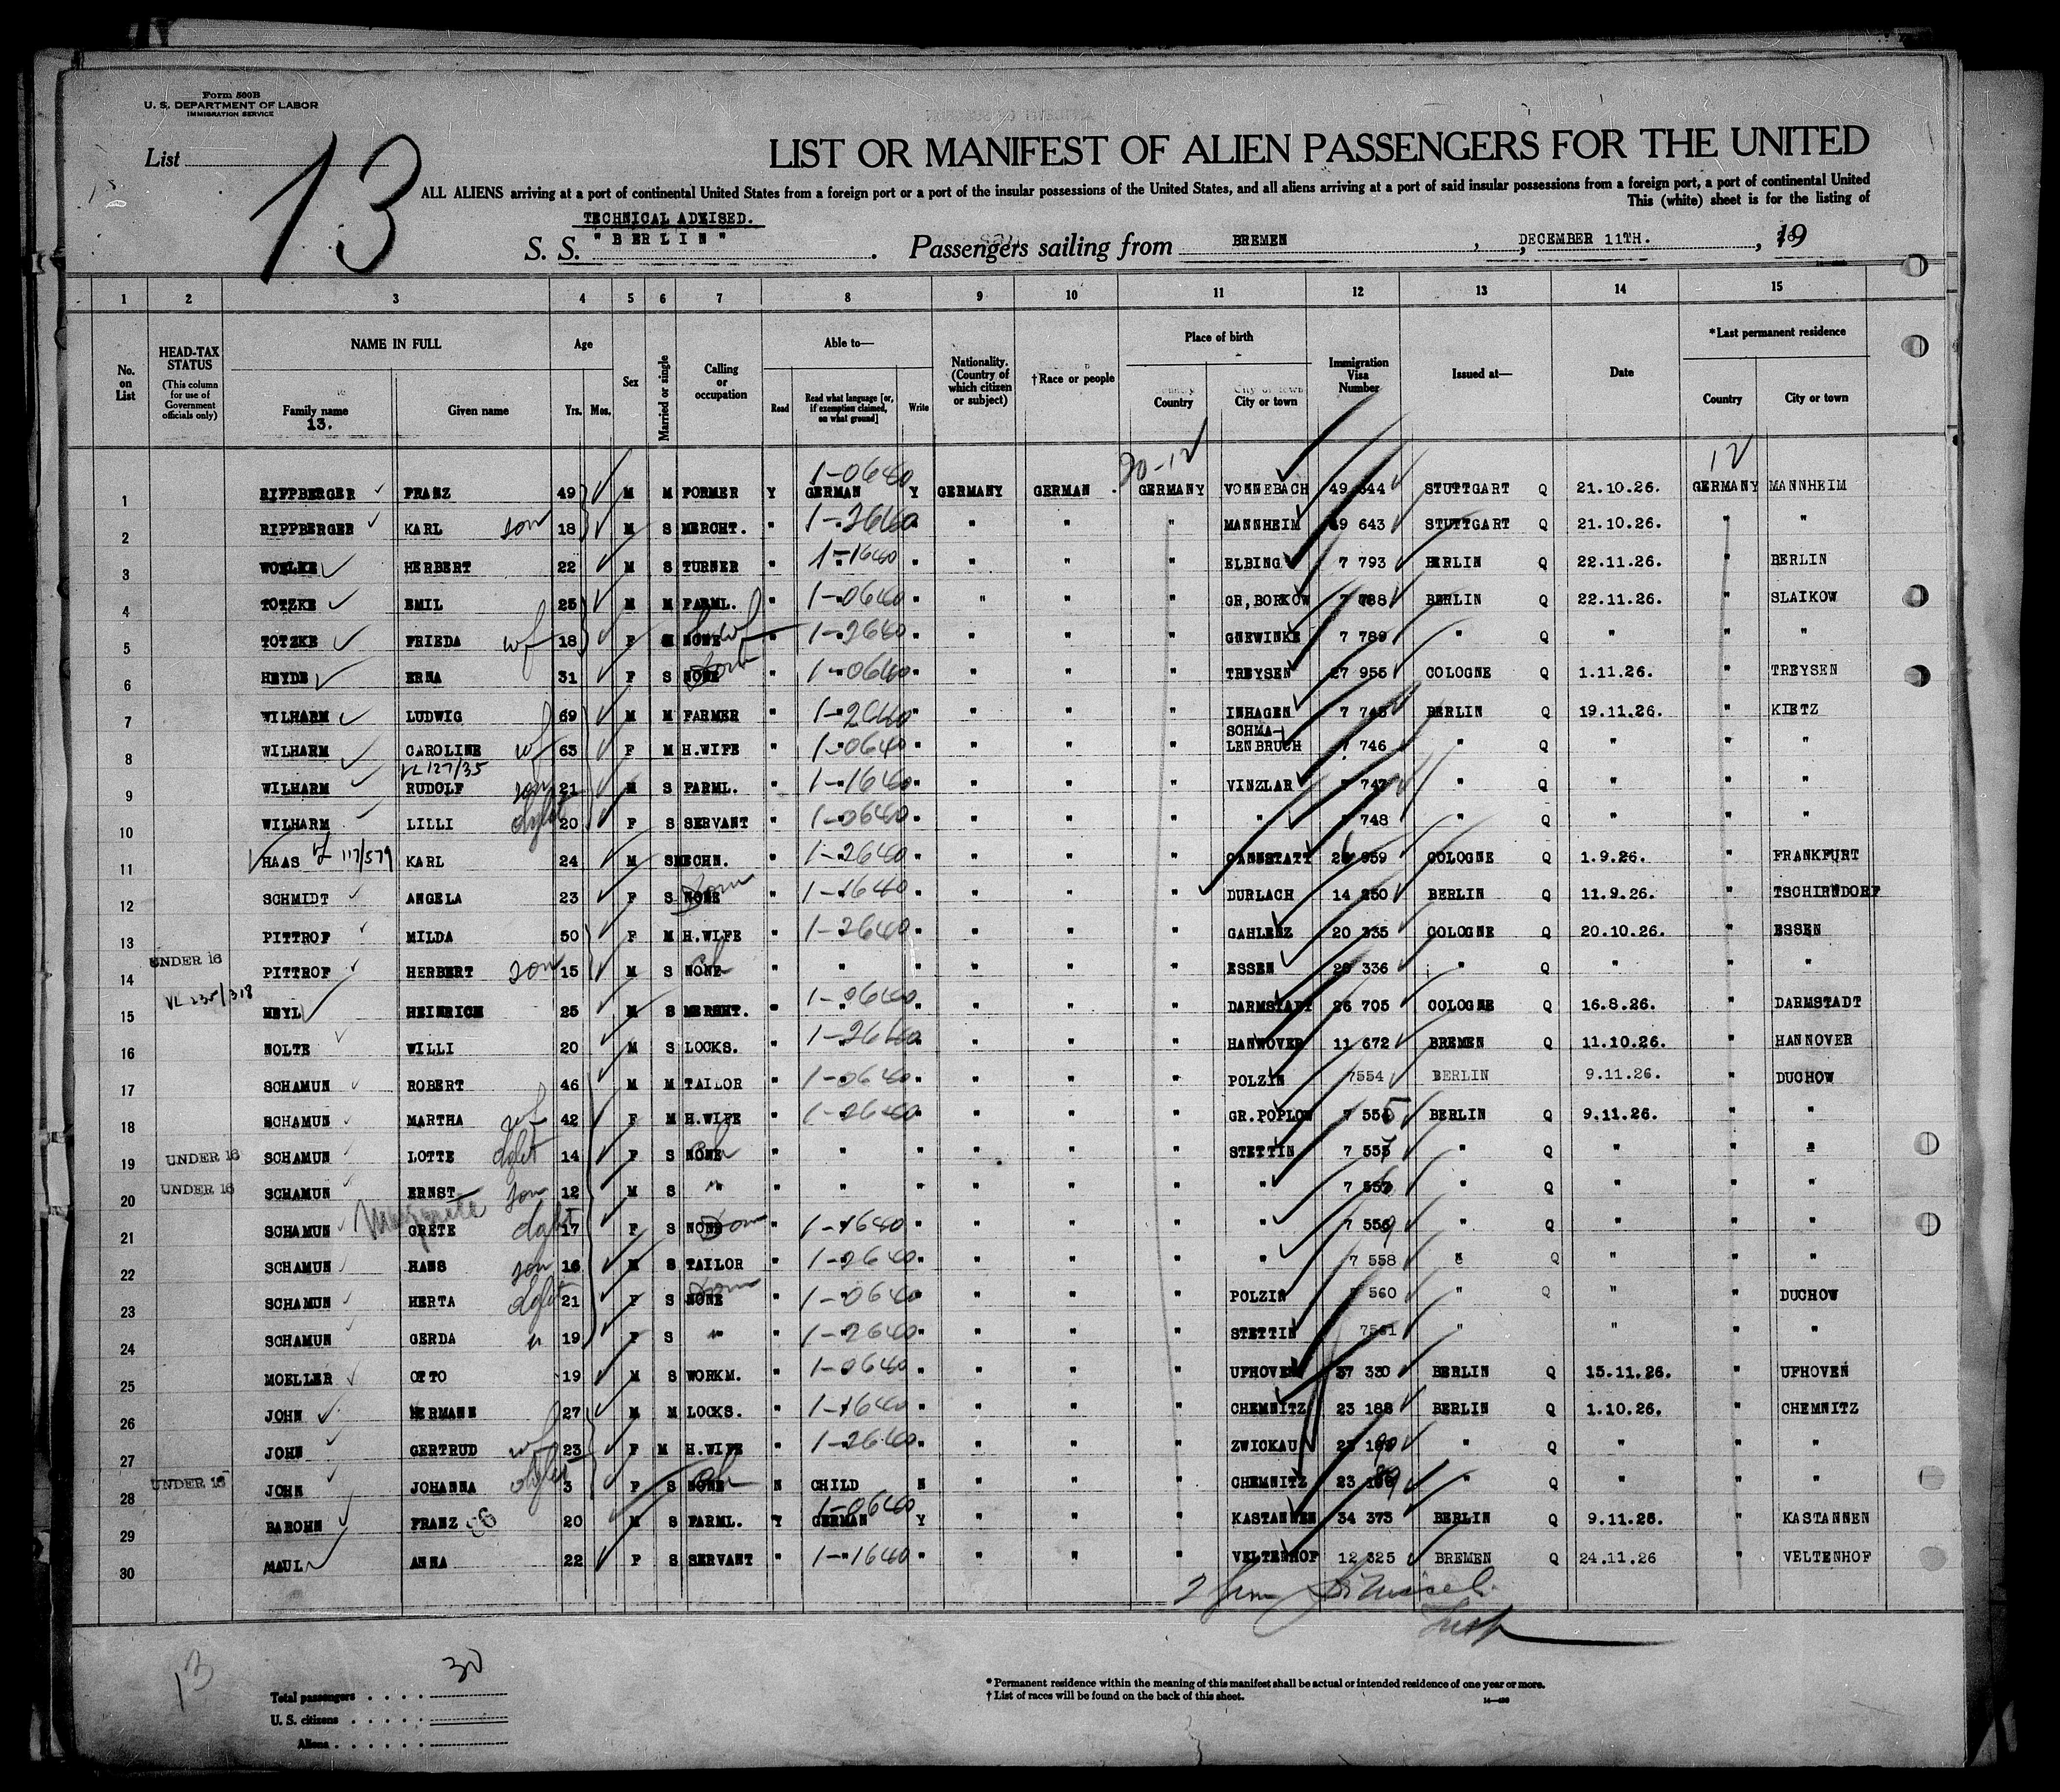 Form 500B
U. S. DEPARTMENT OF LABOR
IMMIGRATION SERVICE
List 13
LIST OR MANIFEST OF ALIEN PASSENGERS FOR THE UNITED
ALL ALIENS arriving at a port of continental United States from a foreign port or a port of the insular possessions of the United States, and all aliens arriving at a port of said insular possessions from a foreign port, a port of continental United
This (white) sheet is for the listing of
TECHNICAL ADVISED.
S. S. "BERLIN" . Passengers sailing from BREMEN , DECEMBER 11TH. , 19
1 2 3 4 5 6 7 8 9 10 11 12 13 14 15
No. on List HEAD-TAX STATUS (This column for use of Government officials only) NAME IN FULL Family name Given name Age Yrs. Mos. Sex Married or single Calling or occupation Able to— Read Read what language [or, if exemption claimed, on what ground] Write Nationality. (Country of which citizen or subject) †Race or people Place of birth Country City or town Immigration Visa Number Issued at— Date *Last permanent residence Country City or town
13.
20-12 12
1 RIPPBERGER FRANZ 49 M M FORMER Y 1-0640 GERMAN Y GERMANY GERMAN GERMANY VONNEBACH 49 644 STUTTGART Q 21.10.26. GERMANY MANNHEIM
2 RIPPBERGER KARL son 18 M S MERCHT. " 1-2640 " " " " MANNHEIM 49 643 STUTTGART Q 21.10.26. " "
3 WOELKE HERBERT 22 M S TURNER " 1-1640 " " " " ELBING 7 793 BERLIN Q 22.11.26. " BERLIN
4 TOTZKE EMIL 25 M M FARML. " 1-0640 " " " " GR,BORKOW 7 788 BERLIN Q 22.11.26. " SLAIKOW
5 TOTZKE FRIEDA wf 18 F M NONE " 1-2640 " " " " GNEWINKE 7 789 " Q " " "
6 HEYDE ERNA 31 F S NONE " 1-0640 " " " " TREYSEN 27 955 COLOGNE Q 1.11.26. " TREYSEN
7 WILHARM LUDWIG 69 M M FARMER " 1-2640 " " " " INHAGEN 7 745 BERLIN Q 19.11.26. " KIETZ
8 WILHARM CAROLINE wf 63 F M H.WIFE " 1-0640 " " " " SCHMA-LENBRUCH 7 746 " Q " " "
VL 127/35
9 WILHARM RUDOLF son 21 M S FARML. " 1-1640 " " " " VINZLAR 7 747 " Q " " "
10 WILHARM LILLI dght 20 F S SERVANT " 1-0640 " " " " " 7 748 " Q " " "
11 HAAS vf 117/579 KARL 24 M S MECHN. " 1-2640 " " " " CANNSTATT 959 COLOGNE Q 1.9.26. " FRANKFURT
12 SCHMIDT ANGELA 23 F S NONE Dom " 1-1640 " " " " DURLACH 14 250 BERLIN Q 11.9.26. " TSCHIRNDORF
13 PITTROF MILDA 50 F M H.WIFE " 1-2640 " " " " GAHLENZ 20 335 COLOGNE Q 20.10.26. " ESSEN
14 UNDER 16 PITTROF HERBERT son 15 M S NONE ch " " " " " " ESSEN 20 336 " Q " " "
15 VL 235/318 HEYL HEINRICH 25 M S MERCHT. " 1-0640 " " " " DARMSTADT 26 705 COLOGNE Q 16.8.26. " DARMSTADT
16 NOLTE WILLI 20 M S LOCKS. " 1-2640 " " " " HANNOVER 11 672 BREMEN Q 11.10.26. " HANNOVER
17 SCHAMUN ROBERT 46 M M TAILOR " 1-0640 " " " " POLZIN 7554 BERLIN Q 9.11.26. " DUCHOW
18 SCHAMUN MARTHA wf 42 F M H.WIFE " 1-2640 " " " " GR.POPLOW 7 555 BERLIN Q 9.11.26. " "
19 UNDER 16 SCHAMUN LOTTE dght 14 F S NONE ch " " " " " " STETTIN 7 557 " Q " " "
20 UNDER 16 SCHAMUN ERNST son 12 M S " " " " " " " " 7 556 " Q " " "
21 SCHAMUN Margrete GRETE dght 17 F S NONE Dom " 1-1640 " " " " " 7 559 " Q " " "
22 SCHAMUN HANS son 16 M S TAILOR " 1-2640 " " " " " 7 558 " Q " " "
23 SCHAMUN HERTA dght 21 F S NONE Dom " 1-0640 " " " " POLZIN 7 560 " Q " " DUCHOW
24 SCHAMUN GERDA " 19 F S " " 1-2640 " " " " STETTIN 7561 " " " "
25 MOELLER OTTO 19 M S WORKM. " 1-0640 " " " " UFHOVEN 37 330 BERLIN Q 15.11.26. " UFHOVEN
26 JOHN HERMANN 27 M M LOCKS. " 1-1640 " " " " CHEMNITZ 23 188 BERLIN Q 1.10.26. " CHEMNITZ
27 JOHN GERTRUD wf 23 F M H.WIFE " 1-2640 " " " " ZWICKAU 23 190 " Q " " "
28 UNDER 16 JOHN JOHANNA dght 3 F S NONE ch N CHILD N " " " CHEMNITZ 23 189 " Q " " "
29 BAROHN FRANZ 20 M S FARML. Y 1-0640 GERMAN Y " " " KASTANNEN 34 373 BERLIN Q 9.11.26. " KASTANNEN
30 MAUL ANNA 22 F S SERVANT " 1-1640 " " " " VELTENHOF 12 325 BREMEN Q 24.11.26 " VELTENHOF
13
Total passengers . . . . 30
U. S. citizens . . . . .
Aliens . . . . . .
* Permanent residence within the meaning of this manifest shall be actual or intended residence of one year or more.
† List of races will be found on the back of this sheet.